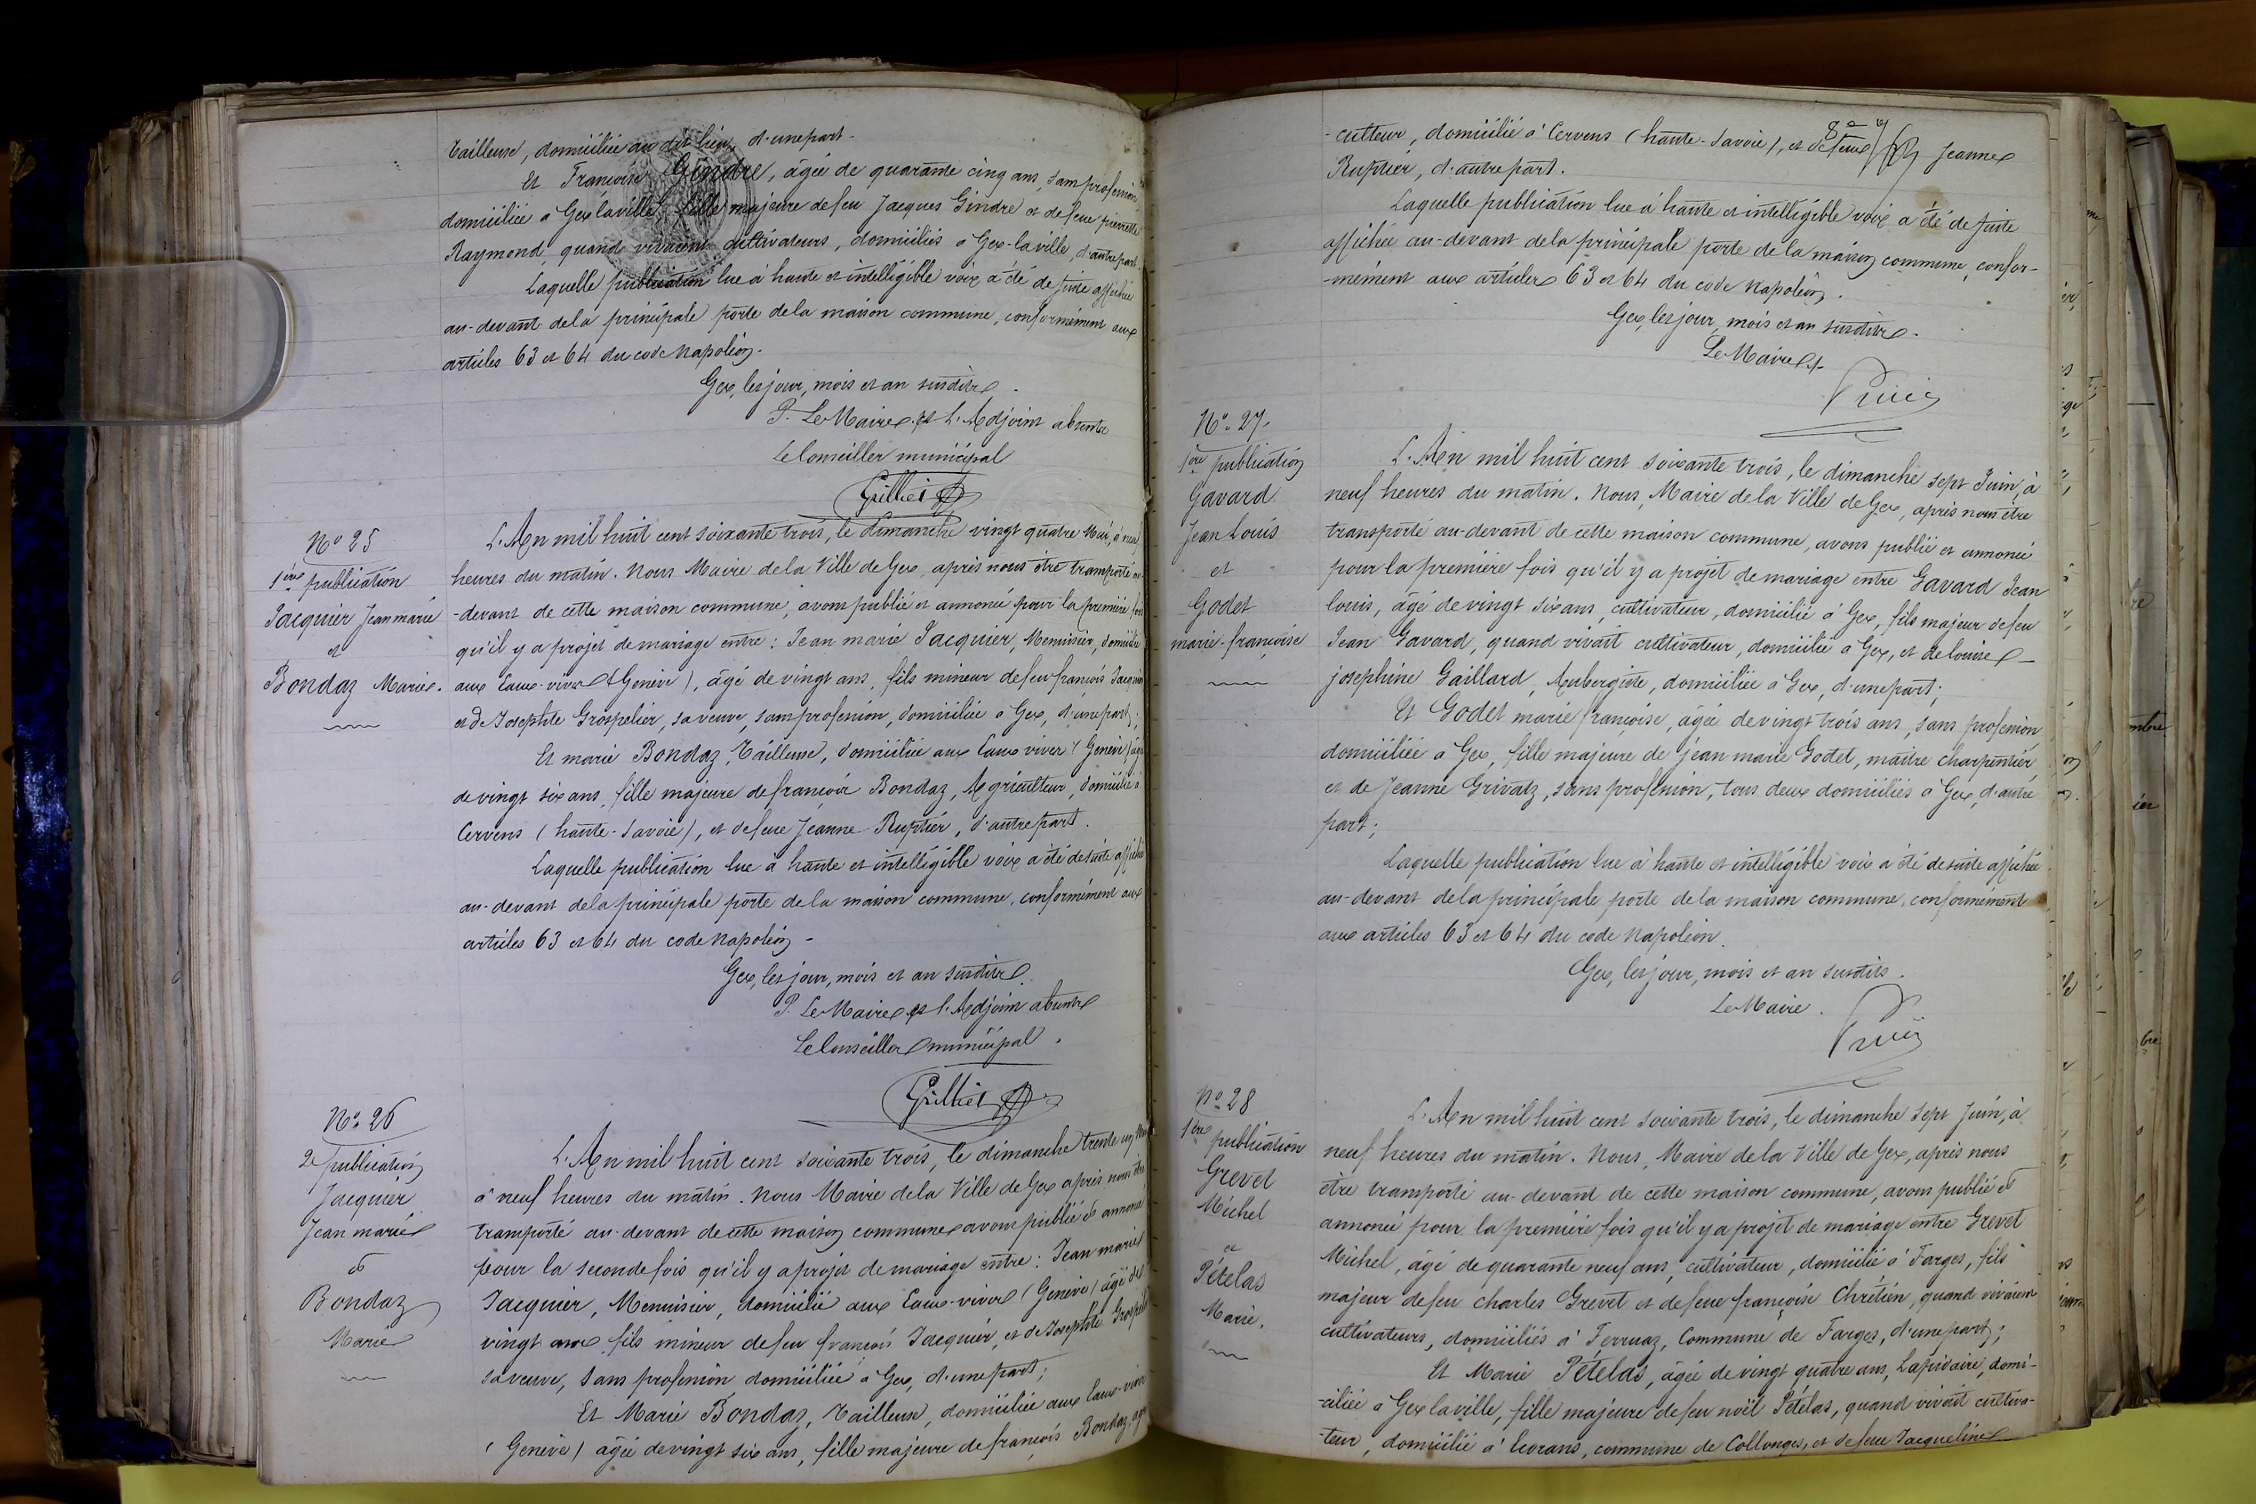 tailleuse, domiciliée au dit lieu, d'une part.
Et Françoise Gindre, âgée de quarante cinq ans, sans profession
domiciliée à Gex la ville, fille majeure de feu Jacques Gindre et de feue pierrette
Raymond, quand vivaient cultivateurs, domiciliés à Gex-la ville, d'autre part.
Laquelle publication lue à haute et intelligible voix a été de suite affichée
au-devant de la principale porte de la maison commune, conformément aux
articles 63 et 64 du code Napoléon.
Gex, les jour, mois et an susdits.
P. Le Maire et l'Adjoint absents
Le Conseiller municipal
Grilliet
No 25
1ère publication
Jacquier Jean marie
et
Bondaz Marie.
L'An mil huit cent soixante trois, le dimanche vingt quatre Mai, à neuf
heures du matin. Nous Maire de la Ville de Gex, après nous être transporté au-
-devant de cette maison commune, avons publié et annoncé pour la première fois
qu'il y a projet de mariage entre : Jean marie Jacquier, Menuisier, domicilié
aux Eaux-vives (Genève), âgé de vingt ans, fils mineur de feu françois Jacquier
et de Josephte Grospelier, sa veuve, sans profession, domiciliée à Gex, d'une part;
Et marie Bondaz, Tailleuse, domiciliée aux Eaux vives (Genève) âgée
de vingt six ans, fille majeure de françois Bondaz, Agriculteur, domicilié à
Cervens (haute-Savoie), et de feue Jeanne Ruptier, d'autre part.
Laquelle publication lue à haute et intelligible voix a été de suite affichée
au-devant de la principale porte de la maison commune, conformément aux
articles 63 et 64 du code Napoléon -
Gex, les jour, mois et an susdits.
P. Le Maire et l'Adjoint absents
Le Conseiller municipal.
Grilliet
No 26
2e publication
Jacquier
Jean marie
et
Bondaz
Marie
L'An mil huit cent soixante trois, le dimanche trente un Mai
à neuf heures du matin. Nous Maire de la Ville de Gex après nous être
transporté au-devant de cette maison commune avons publié et annoncé
pour la seconde fois qu'il y a projet de mariage entre : Jean marie
Jacquier, Menuisier, domicilié aux Eaux-vives (Genève) âgé de
vingt ans fils mineur de feu françois Jacquier, et de Josephte Grospelier
sa veuve, sans profession domiciliée à Gex, d'une part;
Et Marie Bondaz, Tailleuse, domiciliée aux Eaux-vives
(Genève) âgée de vingt six ans, fille majeure de françois Bondaz, agri
-culteur, domicilié à Cervens (haute-Savoie), et de feue Jeanne
Ruptier, d'autre part.
Laquelle publication lue à haute et intelligible voix a été de suite
affichée au-devant de la principale porte de la maison commune, confor-
-mément aux articles 63 et 64 du code Napoléon.
Gex, les jour, mois et an susdits.
Le Maire
No 27.
1ère publication
Gavard
Jean Louis
et
Godet
marie-françoise
L'An mil huit cent soixante trois, le dimanche sept Juin, à
neuf heures du matin. Nous, Maire de la Ville de Gex, après nous être
transporté au-devant de cette maison commune, avons publié et annoncé
pour la première fois qu'il y a projet de mariage entre Gavard Jean
louis, âgé de vingt six ans, cultivateur, domicilié à Gex, fils majeur de feu
Jean Gavard, quand vivait cultivateur, domicilié à Gex, et de louise
josephine Gaillard, Aubergiste, domiciliée à Gex, d'une part;
Et Godet marie françoise, âgée de vingt trois ans, sans profession
domiciliée à Gex, fille majeure de jean marie Godet, maître charpentier
et de Jeanne Grivatz, sans profession, tous deux domiciliés à Gex, d'autre
part;
Laquelle publication lue à haute et intelligible voix a été de suite affichée
au-devant de la principale porte de la maison commune, conformément
aux articles 63 et 64 du code Napoléon.
Gex, les jour, mois et an susdits.
Le Maire.
No 28
1ère publication
Grevet
Michel
et
Pételas
Marie.
L'An mil huit cent soixante trois, le dimanche sept Juin, à
neuf heures du matin. Nous, Maire de la Ville de Gex, après nous
être transporté au-devant de cette maison commune, avons publié et
annoncé pour la première fois qu'il y a projet de mariage entre Grevet
Michel, âgé de quarante neuf ans, cultivateur, domicilié à Farges, fils
majeur de feu charles Grevet et de feue françoise Chrétien, quand vivaient
cultivateurs, domiciliés à Ferruaz, Commune de Farges, d'une part;
Et Marie Pételas, âgée de vingt quatre ans, Lapidaire, domi-
-ciliée à Gex la ville, fille majeure de feu noël Pételas, quand vivait cultiva-
-teur, domicilié à Ecorans, commune de Collonges, et de feue Jacqueline